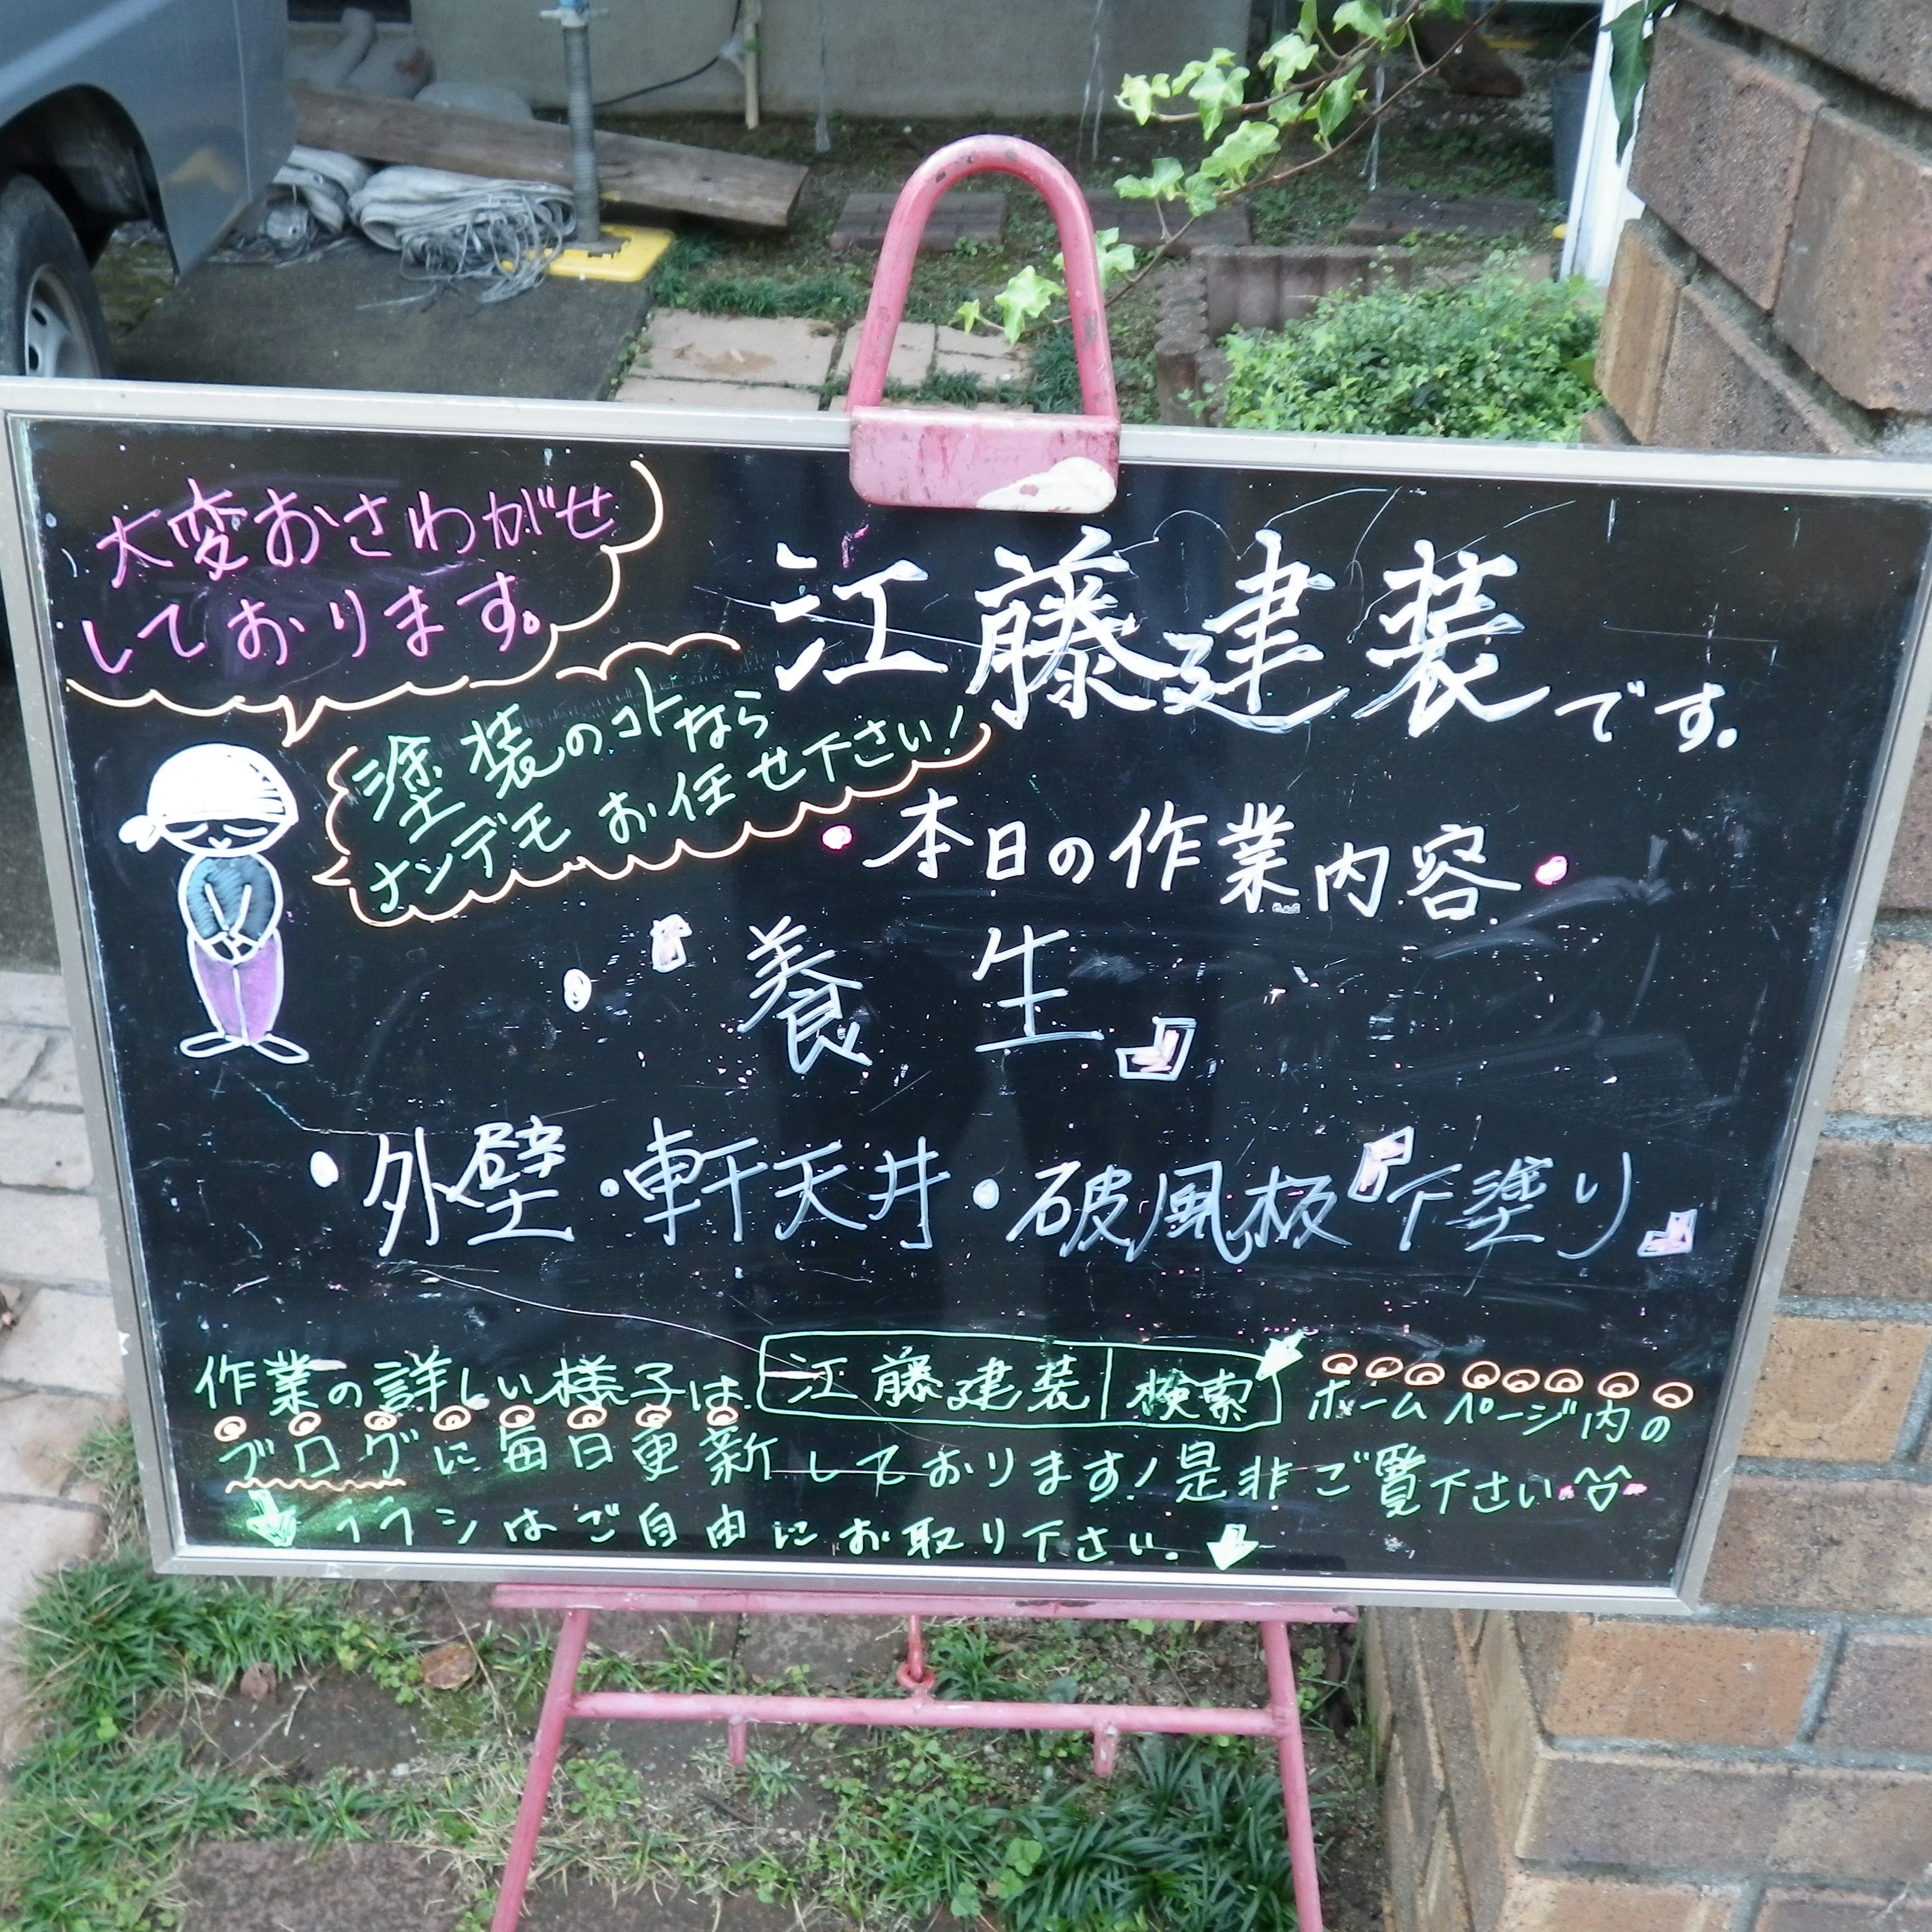 大変おさわがせ
しております。
江藤建装です。
塗装のコトなら
ナンデモお任せ下さい!
・本日の作業内容・
・『養生』
・外壁・軒天井・破風板『下塗り』
作業の詳しい様子は 江藤建装 検索 ホームページ内の
ブログに毎日更新しております!是非ご覧下さい
チラシはご自由にお取り下さい。